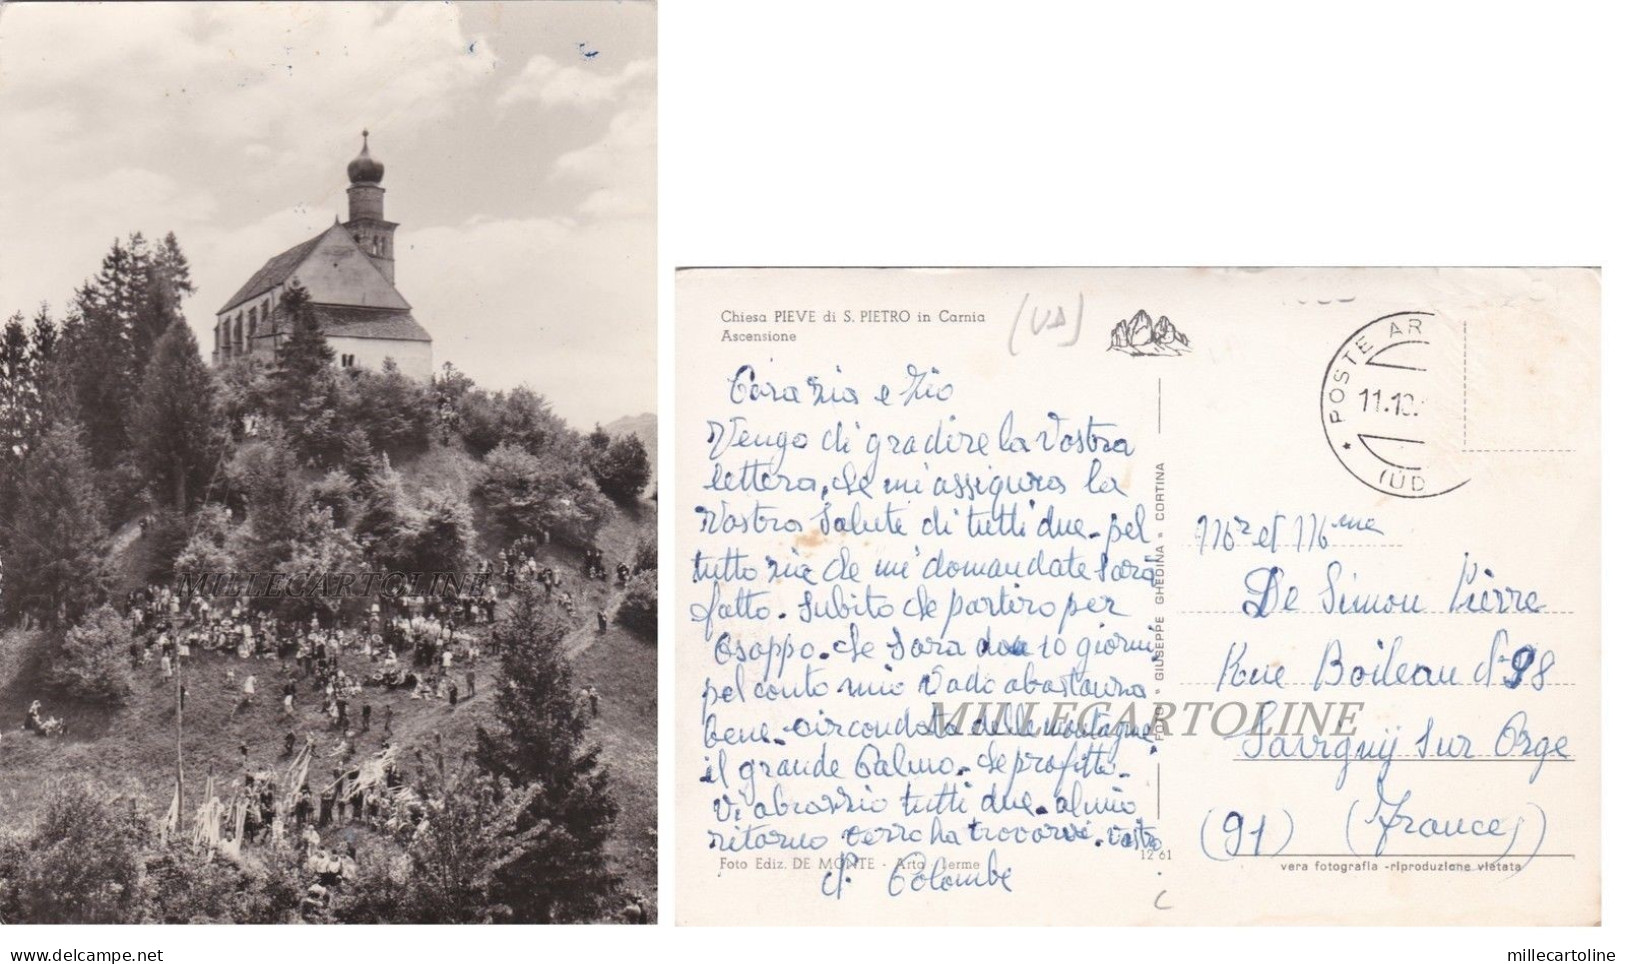 MILLECARTOLINE
Chiesa PIEVE di S. PIETRO in Carnia
Ascensione
(UD)
Cara Zia e Zio
Vengo di gradire la Vostra
lettera, che mi assigura la
Vostra Salute di tutti due - pel
tutto zia che mi domandate Sara
fatto - Subito che partiro per
Osoppo - che Sara 10 giorni
pel conto mio Vado abastanza
bene - circondata delle montagne
il grande Calmo - che profitto -
Vi abrazzio tutti due - al mio
ritorno verro ha trovarvi - Vostro
Colombe
Foto Ediz. DE MONTE - Arta Terme
12 61
FOTO GIUSEPPE GHEDINA CORTINA
POSTE AR
11.10.
(UD
Mr et Mme
De Simon Pierre
Rue Boileau N 98
Savigny Sur Orge
(91) (France)
vera fotografia - riproduzione vietata
MILLECARTOLINE
delcampe.net
millecartoline